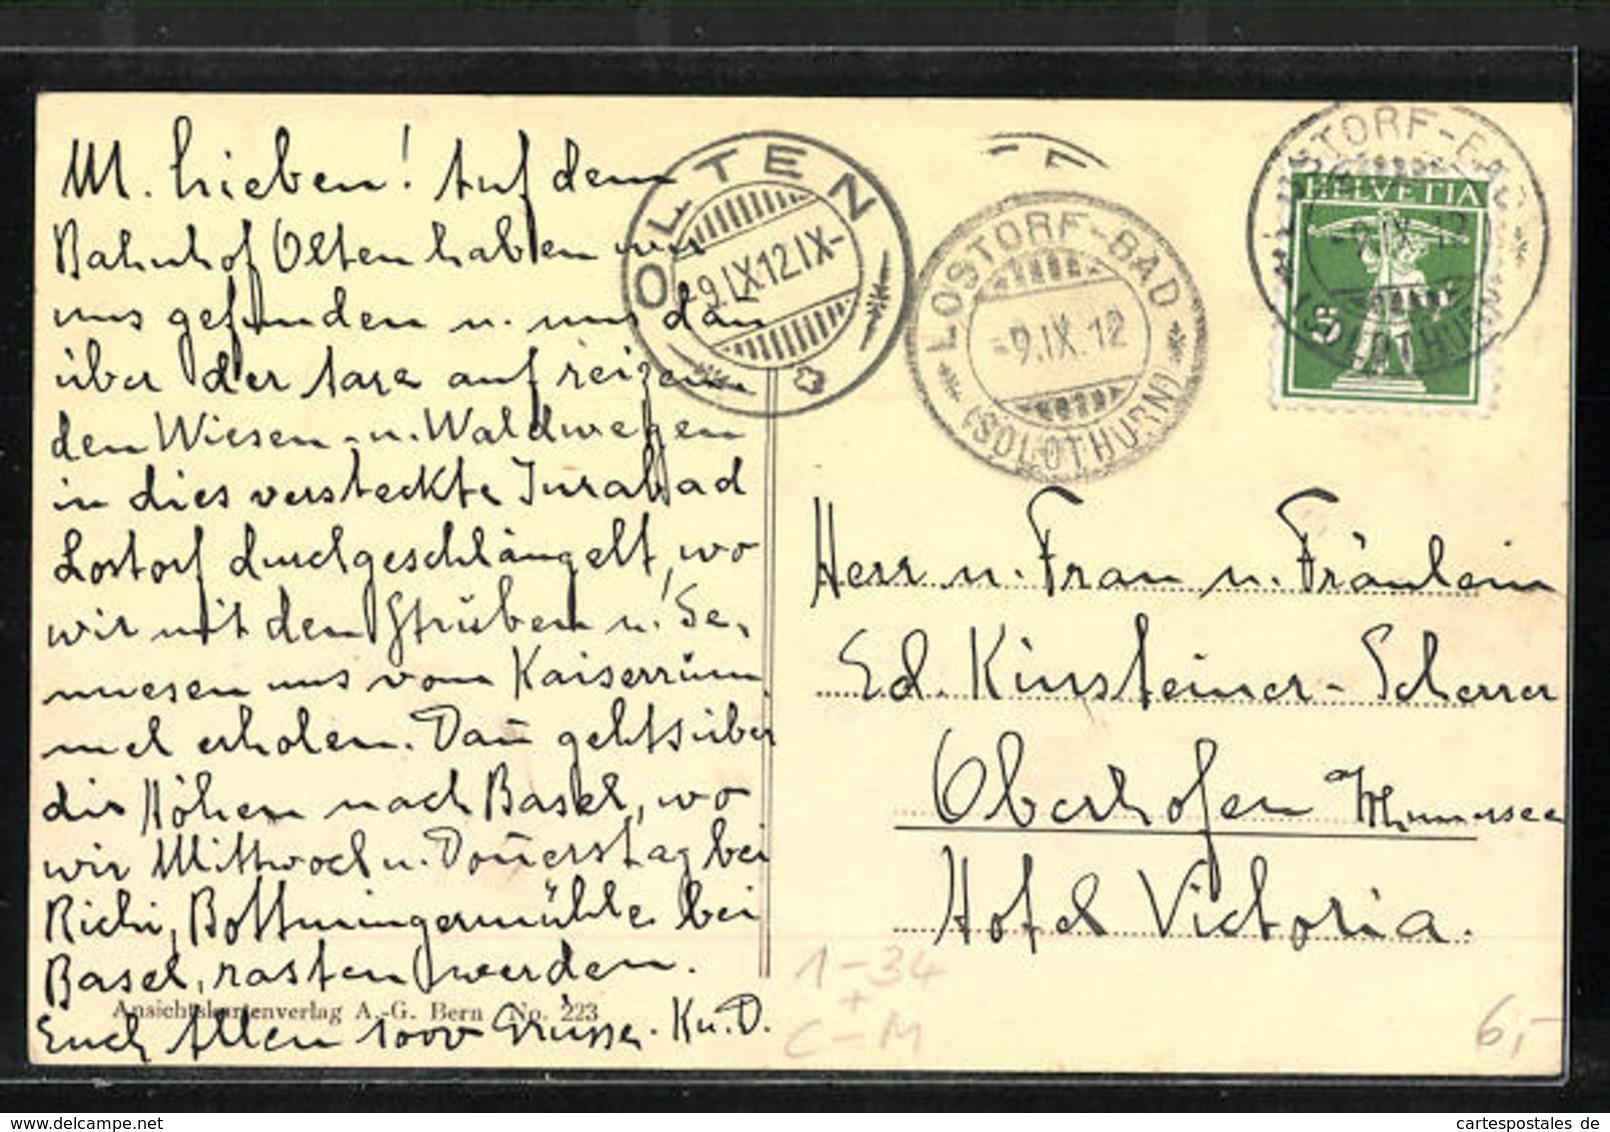 M. Lieben! Auf dem
Bahnhof Olten haben wir
uns gefunden u. uns dan
über der Aare auf reizen
den Wiesen- u. Waldwegen
in dies versteckte Jurabad
Lostorf durchgeschlängelt, wo
wir mit den u. Ge-
uns vom
mel erholen. Dañ gehts über
die Höhen nach Basel, wo
wir Mittwoch u. Doñerstag bei
Richi, Bottmingermühle bei
Basel, rasten werden.
Ansichtskartenverlag A.-G. Bern No. 223
Euch Allen 1000 Grüsse. K u. D.
OLTEN
-9.IX12.IX-
LOSTORF-BAD
-9.IX.12
(SOLOTHURN)
LOSTORF-BAD
-9.IX.12
(SOLOTHURN)
HELVETIA
5
Herr u. Frau u. Fräulein
Ed. Kinsteiner-Scherrer
Oberhofen Thunersee
Hotel Victoria.
1-34
+
C-M
6,-
www.delcampe.net
cartespostales de